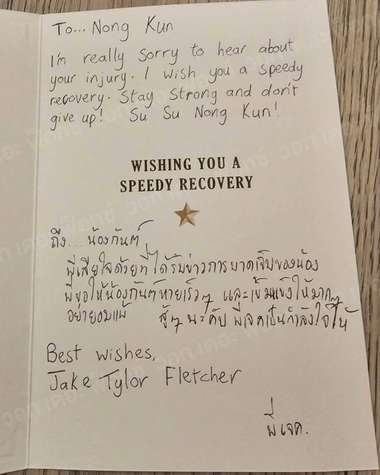 To... Nong Kun
I'm really sorry to hear about
your injury. I wish you a speedy
recovery. Stay strong and don't
give up! Su Su Nong Kun!
WISHING YOU A
SPEEDY RECOVERY
ถึง... น้องกันต์
พี่เสียใจด้วยที่ได้รับข่าวการบาดเจ็บของน้อง
พี่ขอให้น้องกันต์หายเร็วๆ และเข้มแข็งให้มากๆ
อย่ายอมแพ้ สู้ๆ นะคับ พี่เจคเป็นกำลังใจให้
Best wishes,
Jake Tylor Fletcher
พี่เจค.